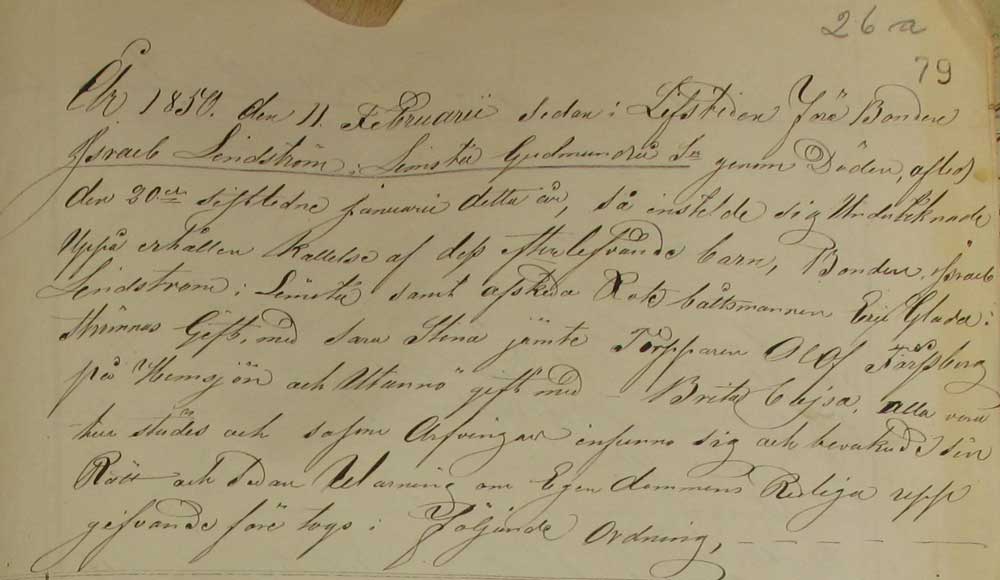 26 a
79
År 1850. den 11. Februarii sedan i Lifstiden före Bonden
Israel Lindström i Limsta Gudmundrå Sn genom Döden, afled
den 20de sistledne januarii detta år, så instelde sig Underteknade
Uppå erhållen kallelse af dess efterlefvande barn, Bonden, Israel
Lindström i Limsta samt afskeda Rote båttsmannen Eric Glada i
Gift, med Sara Stina jämte Torpparen Olof Forssberg
på Hemsjön och Utannö gift med Brita Cajsa, alla voro
här städes och såsom Arfvingar infunno sig och bevakade sin
Rätt och sedan Warning om Egendommens Redliga upp
gifvande före togs i Följande Ordning,